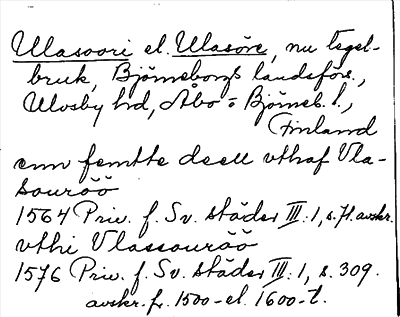 Ulasoori el. Ulasöre, nu tegel-
bruk, Björneborgs landsförs.,
Ulvsby hd, Åbo = Björneb. l.,
Finland
enn femtte deell vthaf Vla-
souröö
1564 Priv. f. Sv. städer III: 1, s. 71. avskr.
vthi Vlassouröö
1576 Priv. f. Sv. städer III: 1, s. 309.
avskr. fr. 1500- el. 1600-t.